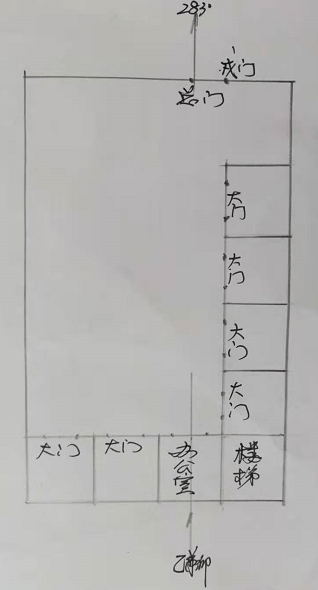 283°
戌门
总门
大门
大门
大门
大门
大门 大门 办公室 楼梯
乙兼卯